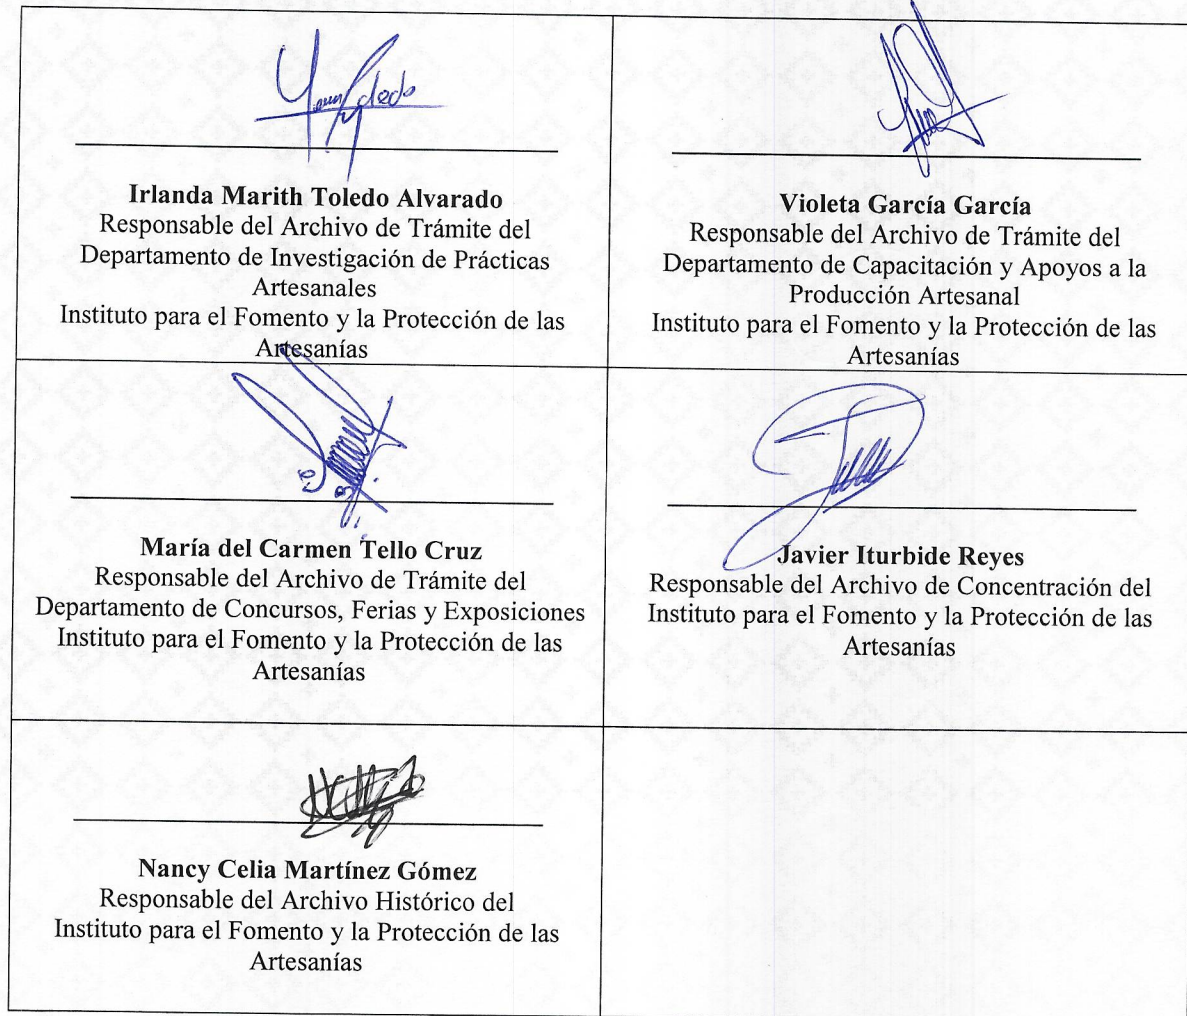 Irlanda Marith Toledo Alvarado
Responsable del Archivo de Trámite del
Departamento de Investigación de Prácticas
Artesanales
Instituto para el Fomento y la Protección de las
Artesanías
Violeta García García
Responsable del Archivo de Trámite del
Departamento de Capacitación y Apoyos a la
Producción Artesanal
Instituto para el Fomento y la Protección de las
Artesanías
María del Carmen Tello Cruz
Responsable del Archivo de Trámite del
Departamento de Concursos, Ferias y Exposiciones
Instituto para el Fomento y la Protección de las
Artesanías
Javier Iturbide Reyes
Responsable del Archivo de Concentración del
Instituto para el Fomento y la Protección de las
Artesanías
Nancy Celia Martínez Gómez
Responsable del Archivo Histórico del
Instituto para el Fomento y la Protección de las
Artesanías